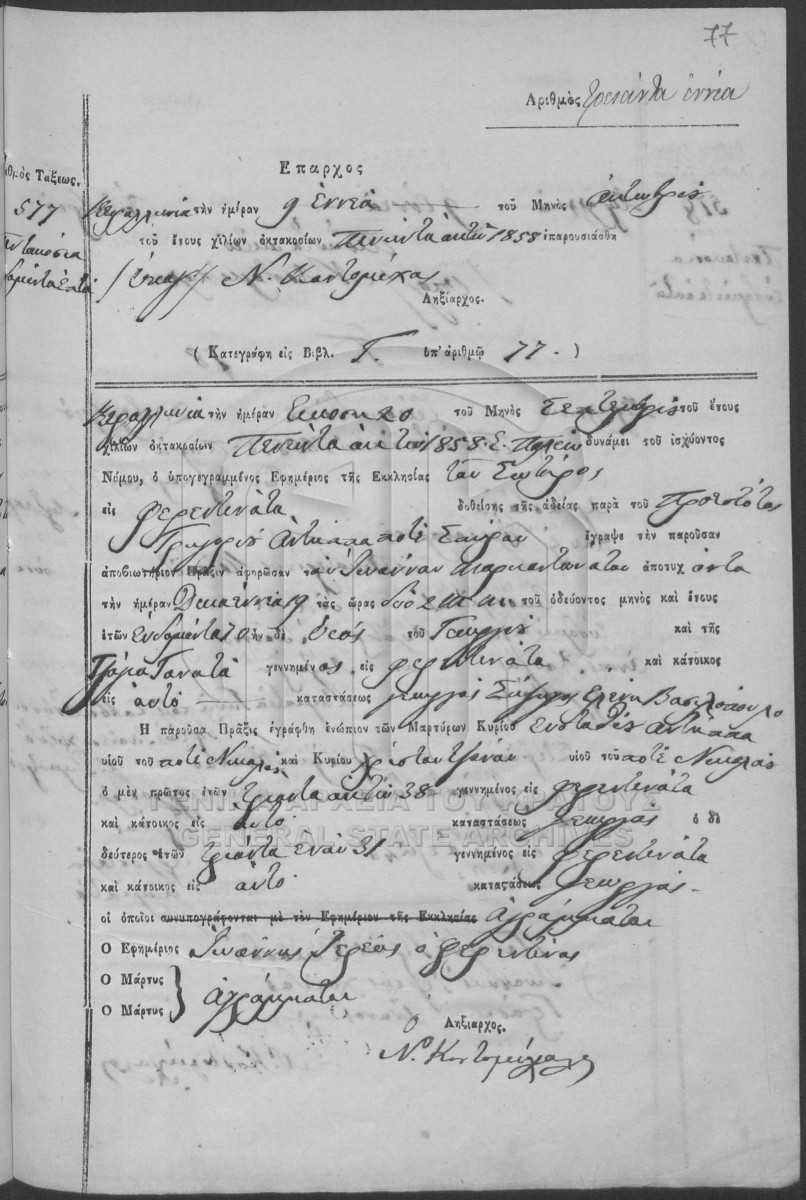 77
Αριθμὸς τριάντα ἐννέα
Ἀριθμὸς Τάξεως.
577
Πεντακόσια
ἑβδομήντα ἑπτά
Επαρχος
Κεφαλληνία τὴν ἡμέραν 9 ἐννεά τοῦ Μηνὸς ὀκτωβρίου
τοῦ ἔτους χιλίων ὀκτακοσίων Πενήντα ὀκτώ 1858 ἐπαρουσιάσθη
/ ὑπογρ / Ν. Κοντομίχαλος
Ληξίαρχος.
( Κατεγράφη εἰς Βιβλ. Γ. ὑπ' ἀριθμῷ 77. )
Κεφαλληνία τὴν ἡμέραν Εἰκοση 20 τοῦ Μηνὸς Σεπτεμβρίου τοῦ ἔτους
χιλίων ὀκτακοσίων Πενήντα ὀκτώ 1858 δυνάμει τοῦ ἰσχύοντος
Νόμου, ὁ ὑπογεγραμμένος Ἐφημέριος τῆς Ἐκκλησίας τοῦ Σωτῆρος
εἰς φερεντινάτα δοθείσης τῆς ἀδείας παρὰ τοῦ Προεστότος
Γρηγορίου Αντίπαπα ποτέ Σπύρου ἔγραψε τὴν παροῦσαν
ἀποβιωτήριον Πρᾶξιν ἀφορῶσαν τὸν Ἰωάννην ἀποτυχ όντα
τὴν ἡμέραν Δεκαεννέα 19 τὰς ὥρας δύο 2 τοῦ ὁδεύοντος μηνὸς καὶ ἔτους
ἐτῶν Ευδομήντα 70 ἦν δὲ ὑιὸς τοῦ Γεωργίου καὶ τῆς
γεννημένος εἰς φερεντινάτα καὶ κάτοικος
εἰς αὐτό καταστάσεως γεωργός Σύζυγος Ελένη Βασιλοπούλο
Ἡ παροῦσα Πρᾶξις ἐγράφθη ἐνώπιον τῶν Μαρτύρων Κυρίου Ευσταθίου Αντίπαπα
υἱοῦ τοῦ ποτέ Νικολάου καὶ Κυρίου Χρίστου υἱοῦ τοῦ ποτέ Νικολάου
ὁ μὲν πρῶτος ἐτῶν τριάντα οκτώ 38 γεννημένος εἰς φερεντινάτα
καὶ κάτοικος εἰς αὐτό καταστάσεως γεωργός ὁ δὲ
δεύτερος ἐτῶν τριάντα εναν 31 γεννημένος εἰς φερεντινάτα
καὶ κάτοικος εἰς αὐτό καταστάσεως γεωργός
οἱ ὁποῖοι συνυπογράφονται μὲ τὸν Ἐφημέριον τῆς Ἐκκλησίας ἀγράμματοι
Ο Ἐφημέριος Ἰωάννης Ἱερεύς ὁ φερεντίνος
Ο Μάρτυς
Ο Μάρτυς } ἀγράμματοι
Ὁ Ληξίαρχος.
Ν. Κοντομίχαλος
ΓΕΝΙΚΑ ΑΡΧΕΙΑ ΤΟΥ ΚΡΑΤΟΥΣ
GENERAL STATE ARCHIVES